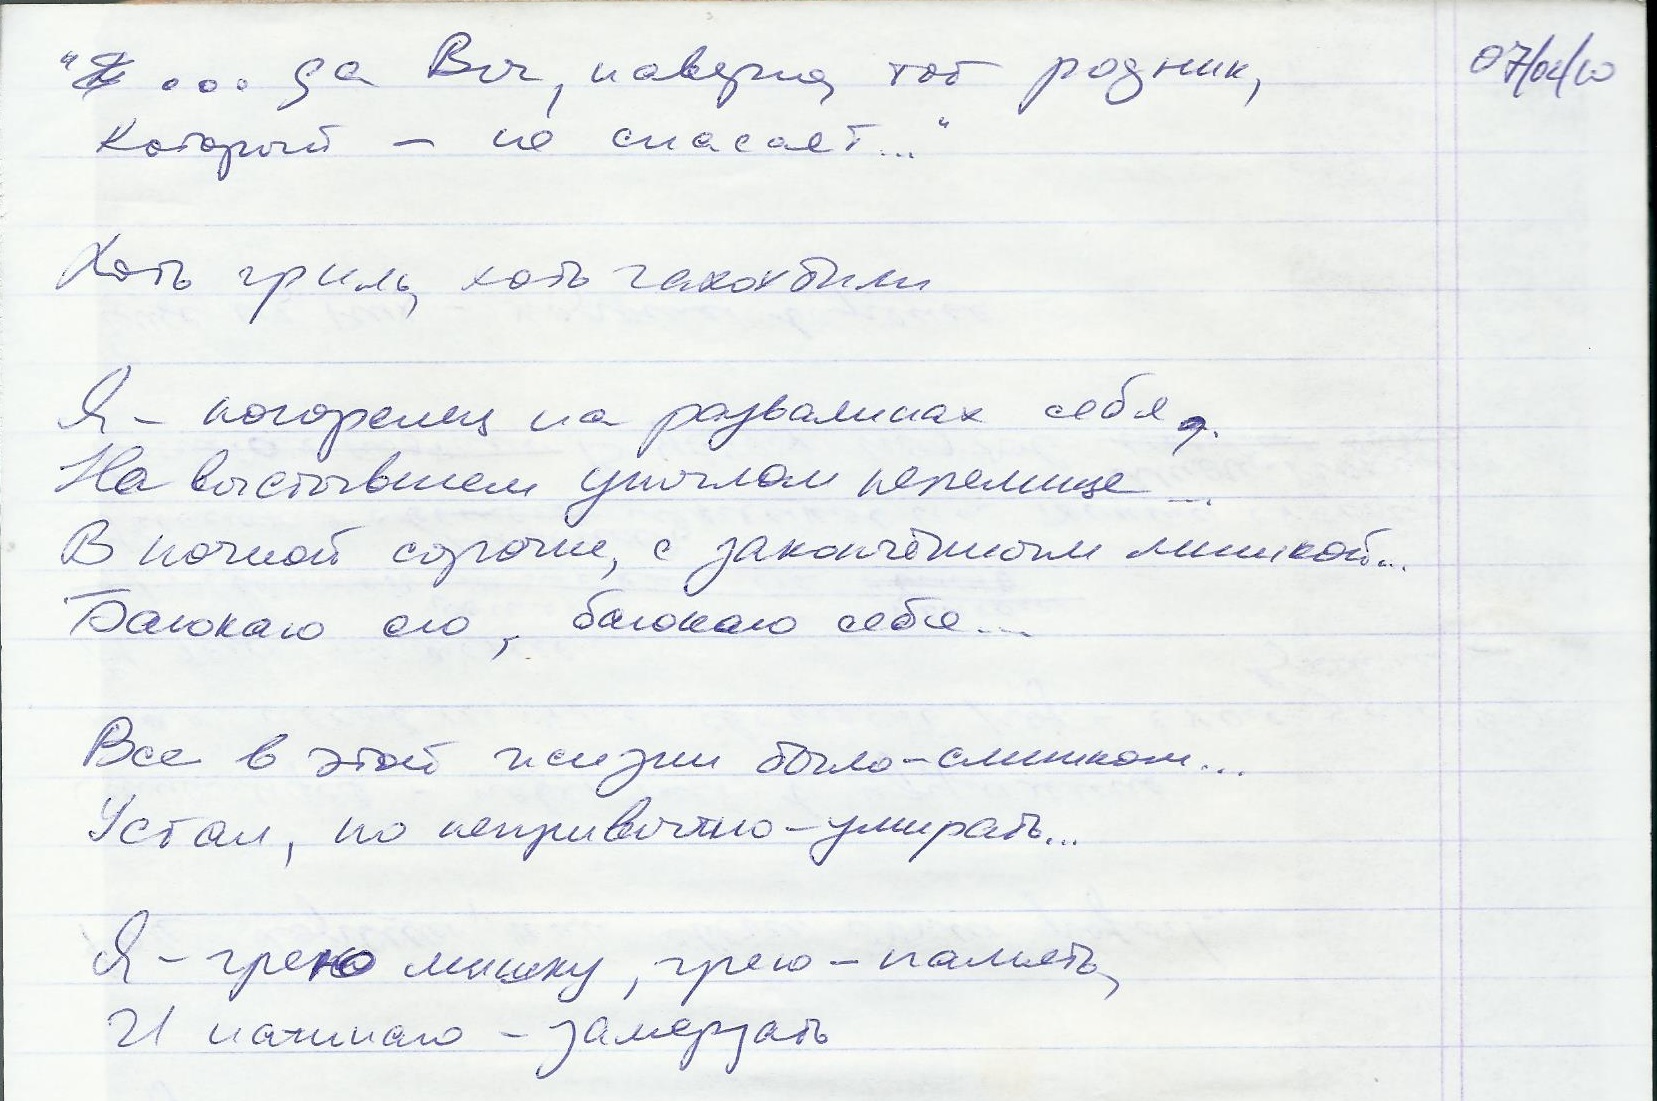 "... да Вы, наверно, тот родник,
который – не спасает..."
Хоть хоть
Я – погорелец на развалинах себя,
На выстывшем унылом пепелище...
В ночной сорочке, с закопчённым мишкой...
Баюкаю его, баюкаю себя...
Все в этой жизни было – слишком...
Устал, но непривычно – умирать...
Я – грею мишку, грею – память,
И начинаю – замерзать